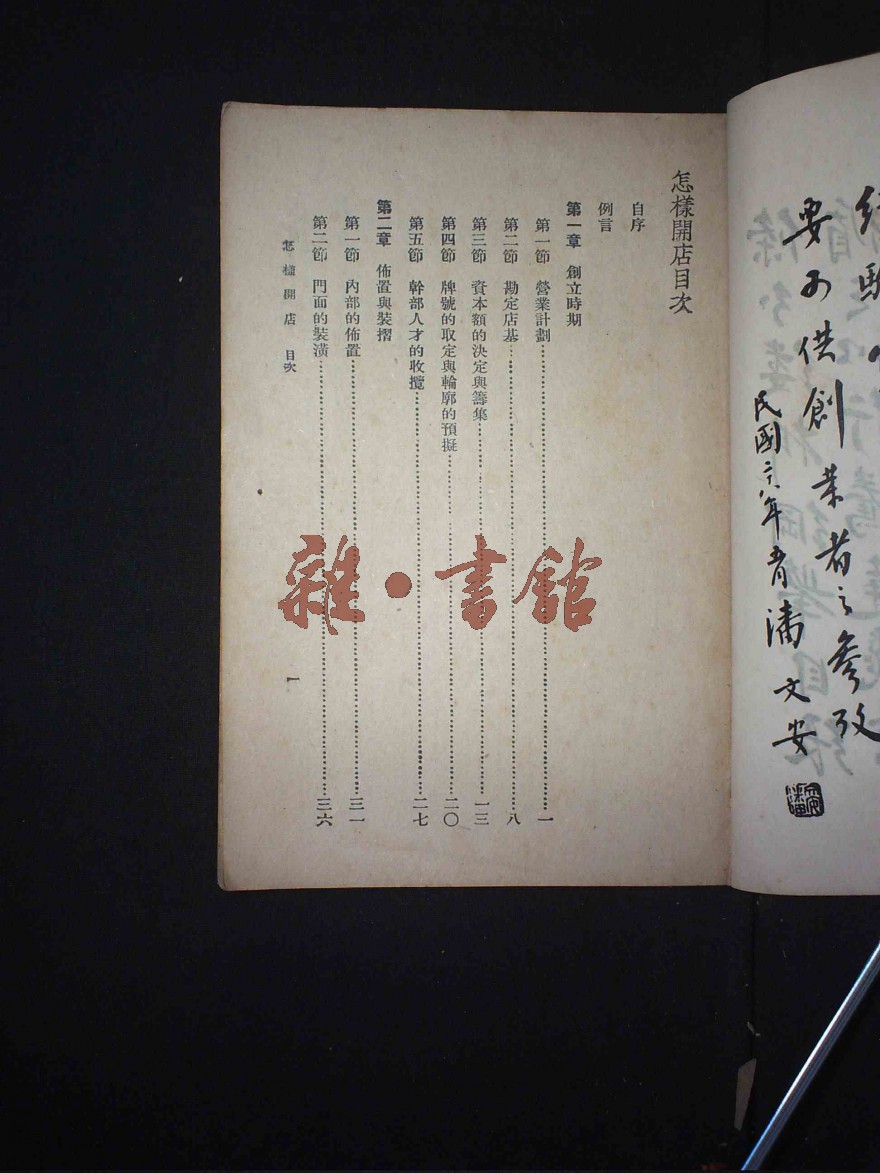 要可供創業者之參攷
民國二十八年五月潘文安
怎樣開店目次
自序
例言
第一章 創立時期
第一節 營業計劃……一
第二節 勘定店基……八
第三節 資本額的決定與籌集……一三
第四節 牌號的取定與輪廓的預擬……二〇
第五節 幹部人才的收攬……二七
第二章 佈置與裝摺
第一節 內部的佈置……三一
第二節 門面的裝潢……三六
怎樣開店 目次
一
雜·書館